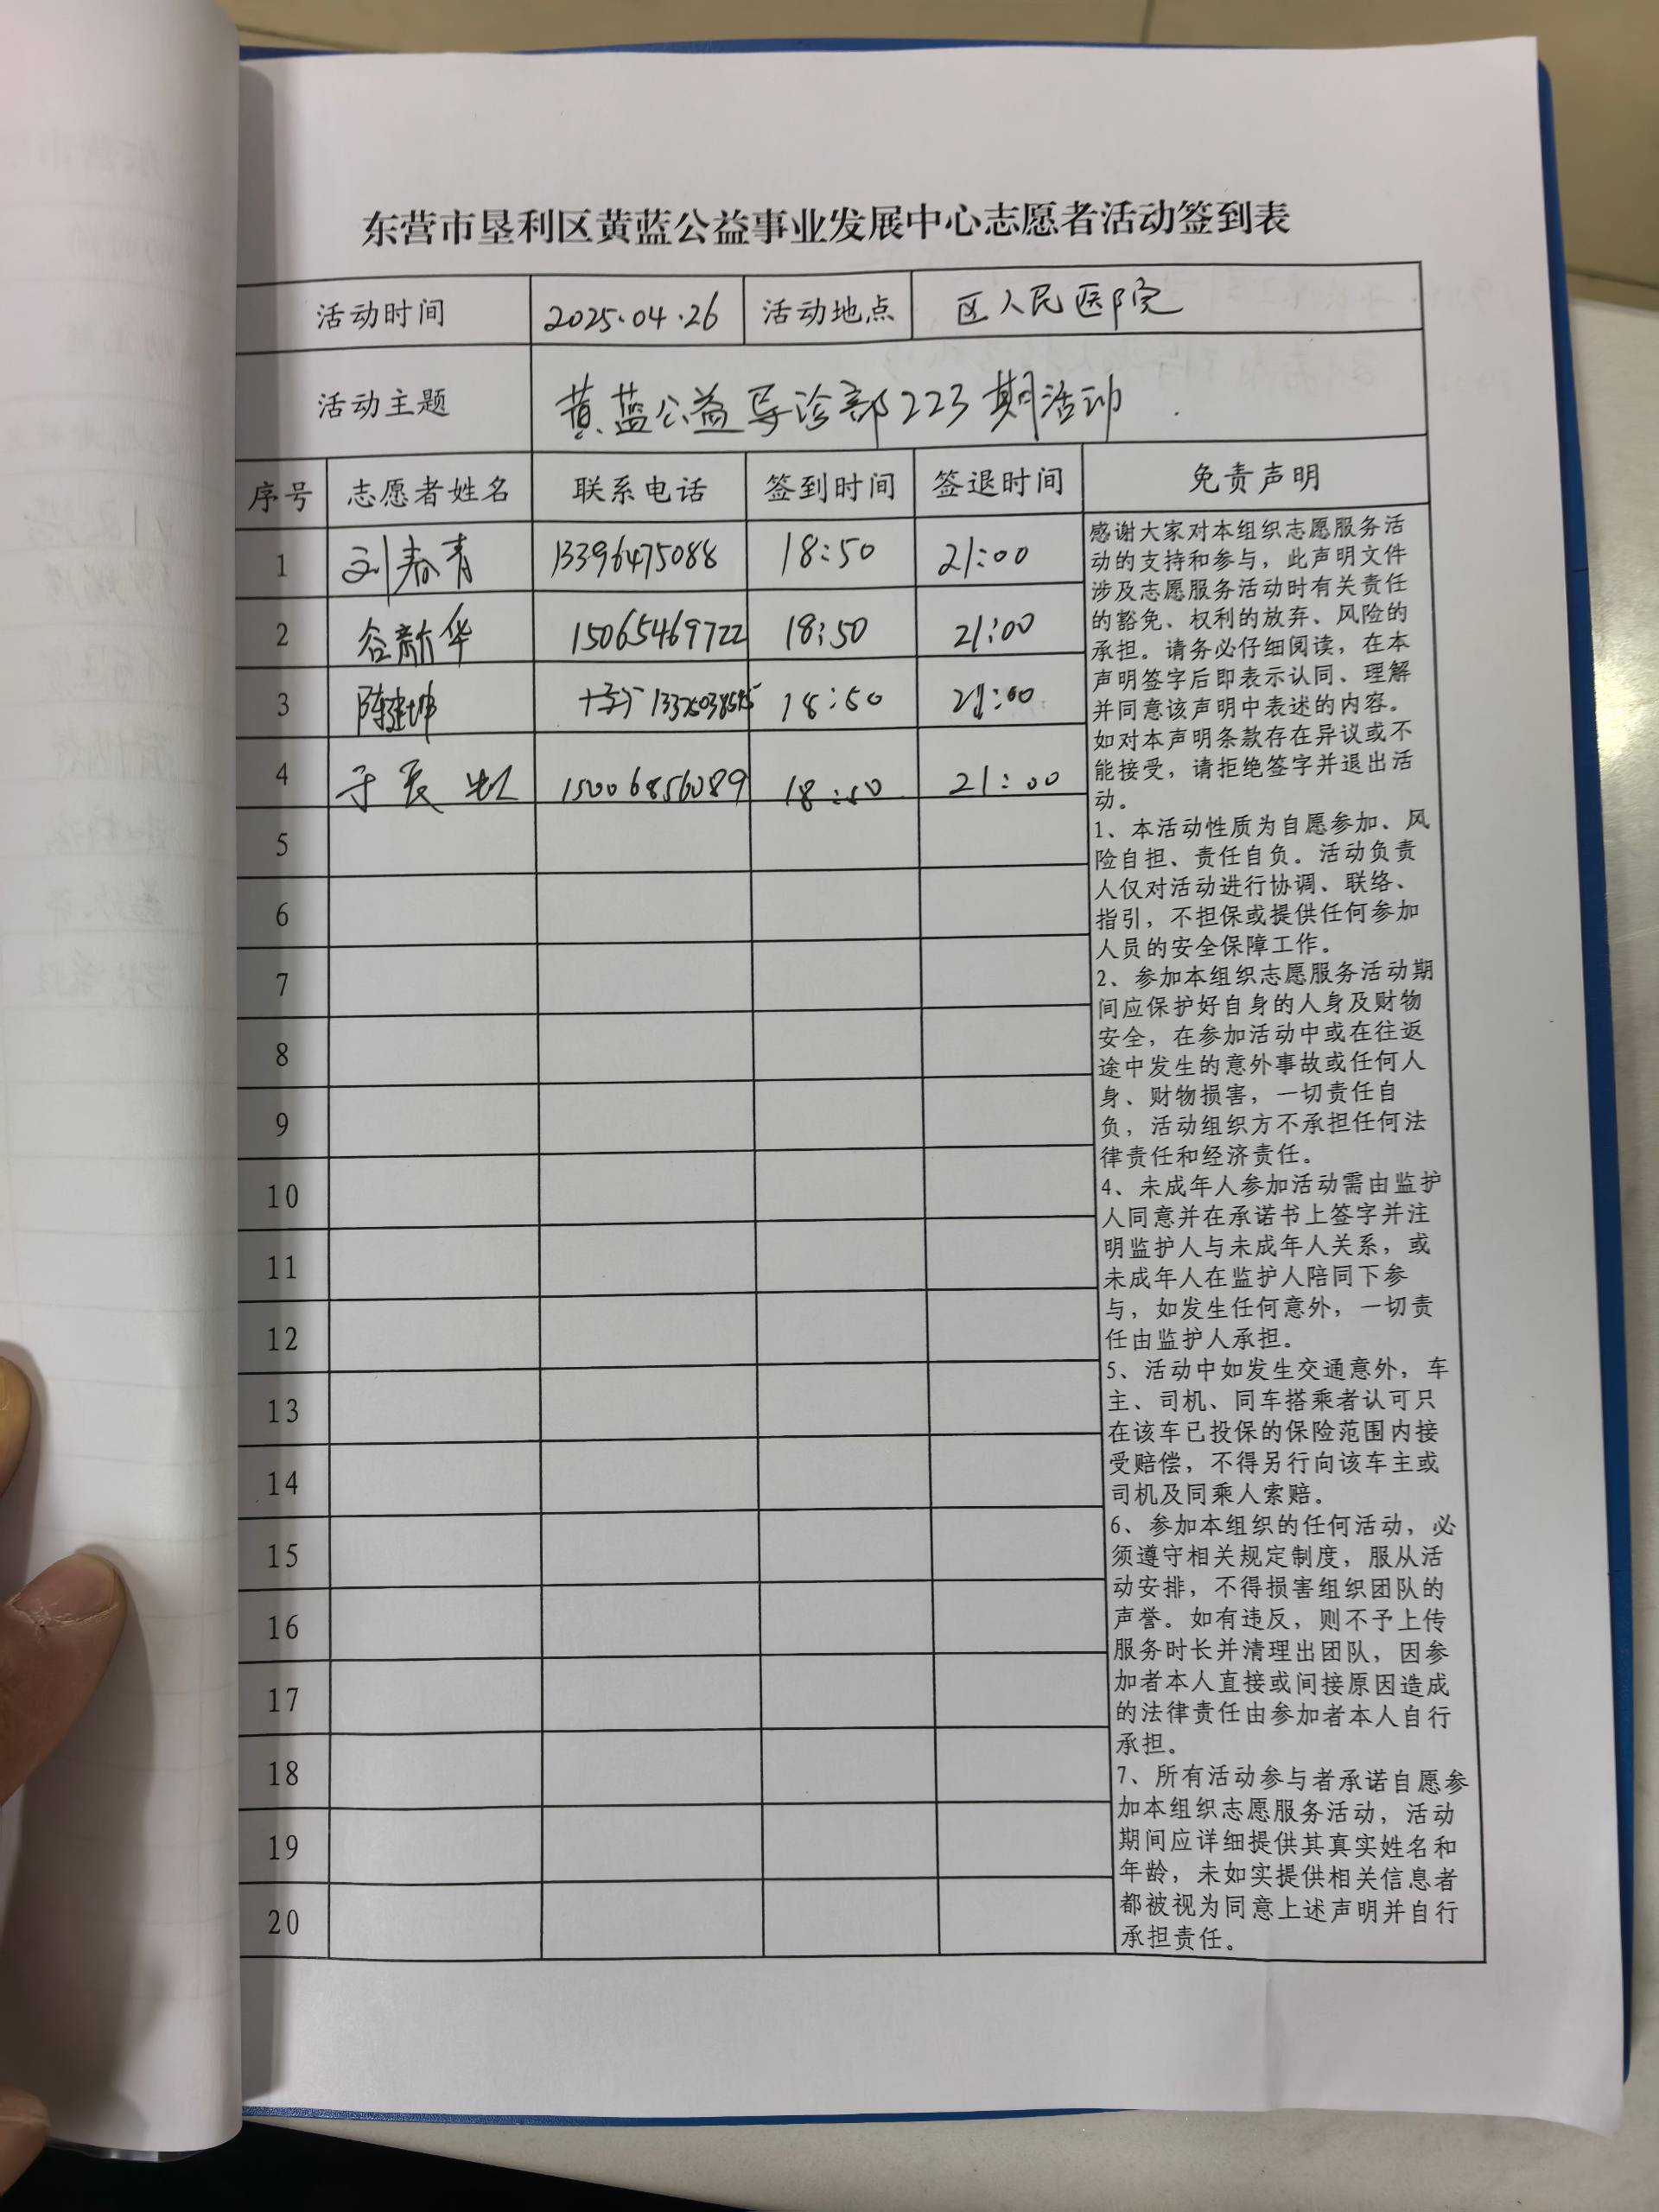 东营市垦利区黄蓝公益事业发展中心志愿者活动签到表
活动时间 2025.04.26 活动地点 区人民医院
活动主题 黄蓝公益导诊部223期活动
序号 志愿者姓名 联系电话 签到时间 签退时间 免责声明
1 刘春青 13396475088 18:50 21:00
2 谷新华 15065469722 18:50 21:00
3 陈建坤 18:50 21:00
4 于 15006856089 18:50 21:00
5
6
7
8
9
10
11
12
13
14
15
16
17
18
19
20
感谢大家对本组织志愿服务活
动的支持和参与，此声明文件
涉及志愿服务活动时有关责任
的豁免、权利的放弃、风险的
承担。请务必仔细阅读，在本
声明签字后即表示认同、理解
并同意该声明中表述的内容。
如对本声明条款存在异议或不
能接受，请拒绝签字并退出活
动。
1、本活动性质为自愿参加、风
险自担、责任自负。活动负责
人仅对活动进行协调、联络、
指引，不担保或提供任何参加
人员的安全保障工作。
2、参加本组织志愿服务活动期
间应保护好自身的人身及财物
安全，在参加活动中或在往返
途中发生的意外事故或任何人
身、财物损害，一切责任自
负，活动组织方不承担任何法
律责任和经济责任。
4、未成年人参加活动需由监护
人同意并在承诺书上签字并注
明监护人与未成年人关系，或
未成年人在监护人陪同下参
与，如发生任何意外，一切责
任由监护人承担。
5、活动中如发生交通意外，车
主、司机、同车搭乘者认可只
在该车已投保的保险范围内接
受赔偿，不得另行向该车主或
司机及同乘人索赔。
6、参加本组织的任何活动，必
须遵守相关规定制度，服从活
动安排，不得损害组织团队的
声誉。如有违反，则不予上传
服务时长并清理出团队，因参
加者本人直接或间接原因造成
的法律责任由参加者本人自行
承担。
7、所有活动参与者承诺自愿参
加本组织志愿服务活动，活动
期间应详细提供其真实姓名和
年龄，未如实提供相关信息者
都被视为同意上述声明并自行
承担责任。